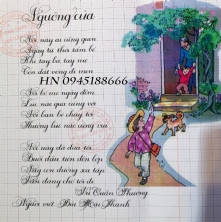 Ngưỡng cửa
Nơi này ai cũng quen
Ngay từ thời tấm bé
Khi tay bà, tay mẹ
Còn dắt vòng đi men
HN 0945188666
Nơi bố mẹ ngày đêm
Lúc nào qua cũng vội
Nơi bạn bè chạy tới
Thường lúc nào cũng vui
Nơi này đã đưa tôi
Buổi đầu tiên đến lớp
Nay con đường xa tắp
Vẫn đang chờ tôi đi
Vũ Quần Phương
Người viết
Thanh